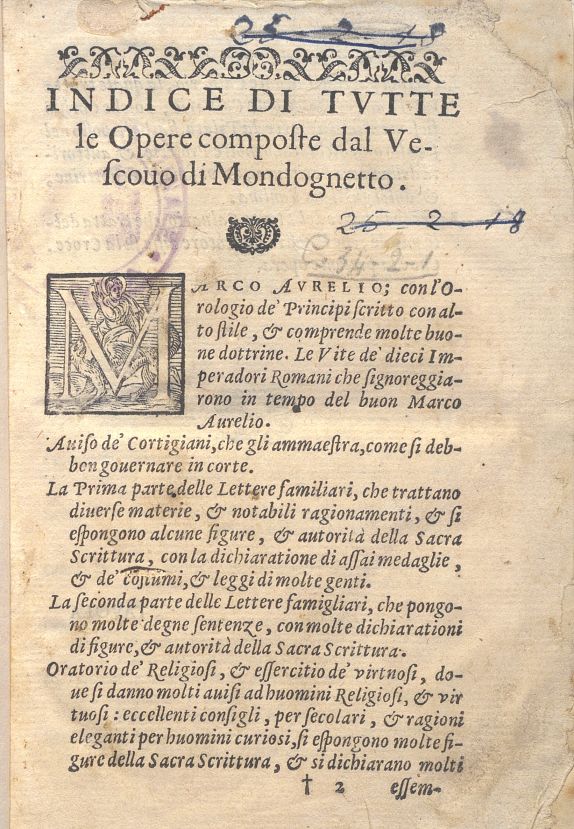 25-2-18
INDICE DI TVTTE
le Opere composte dal Ve-
scouo di Mondognetto.
25-2-18
C-34-2-1
MARCO AVRELIO; con l'O-
rologio de' Principi scritto con al-
to stile, & comprende molte buo-
ne dottrine. Le Vite de' dieci Im-
peradori Romani che signoreggia-
rono in tempo del buon Marco
Aurelio.
Auiso de' Cortigiani, che gli ammaestra, come si deb-
bon gouernare in corte.
La Prima parte delle Lettere familiari, che trattano
diuerse materie, & notabili ragionamenti, & si
espongono alcune figure, & autorità della Sacra
Scrittura, con la dichiaratione di assai medaglie,
& de' costumi, & leggi di molte genti.
La seconda parte delle Lettere famigliari, che pongo-
no molte degne sentenze, con molte dichiarationi
di figure, & autorità della Sacra Scrittura.
Oratorio de' Religiosi, & essercitio de' virtuosi, do-
ue si danno molti auisi ad huomini Religiosi, & vir
tuosi: eccellenti consigli, per secolari, & ragioni
eleganti per huomini curiosi, si espongono molte fi-
gure della Sacra Scrittura, & si dichiarano molti
† 2 essem-